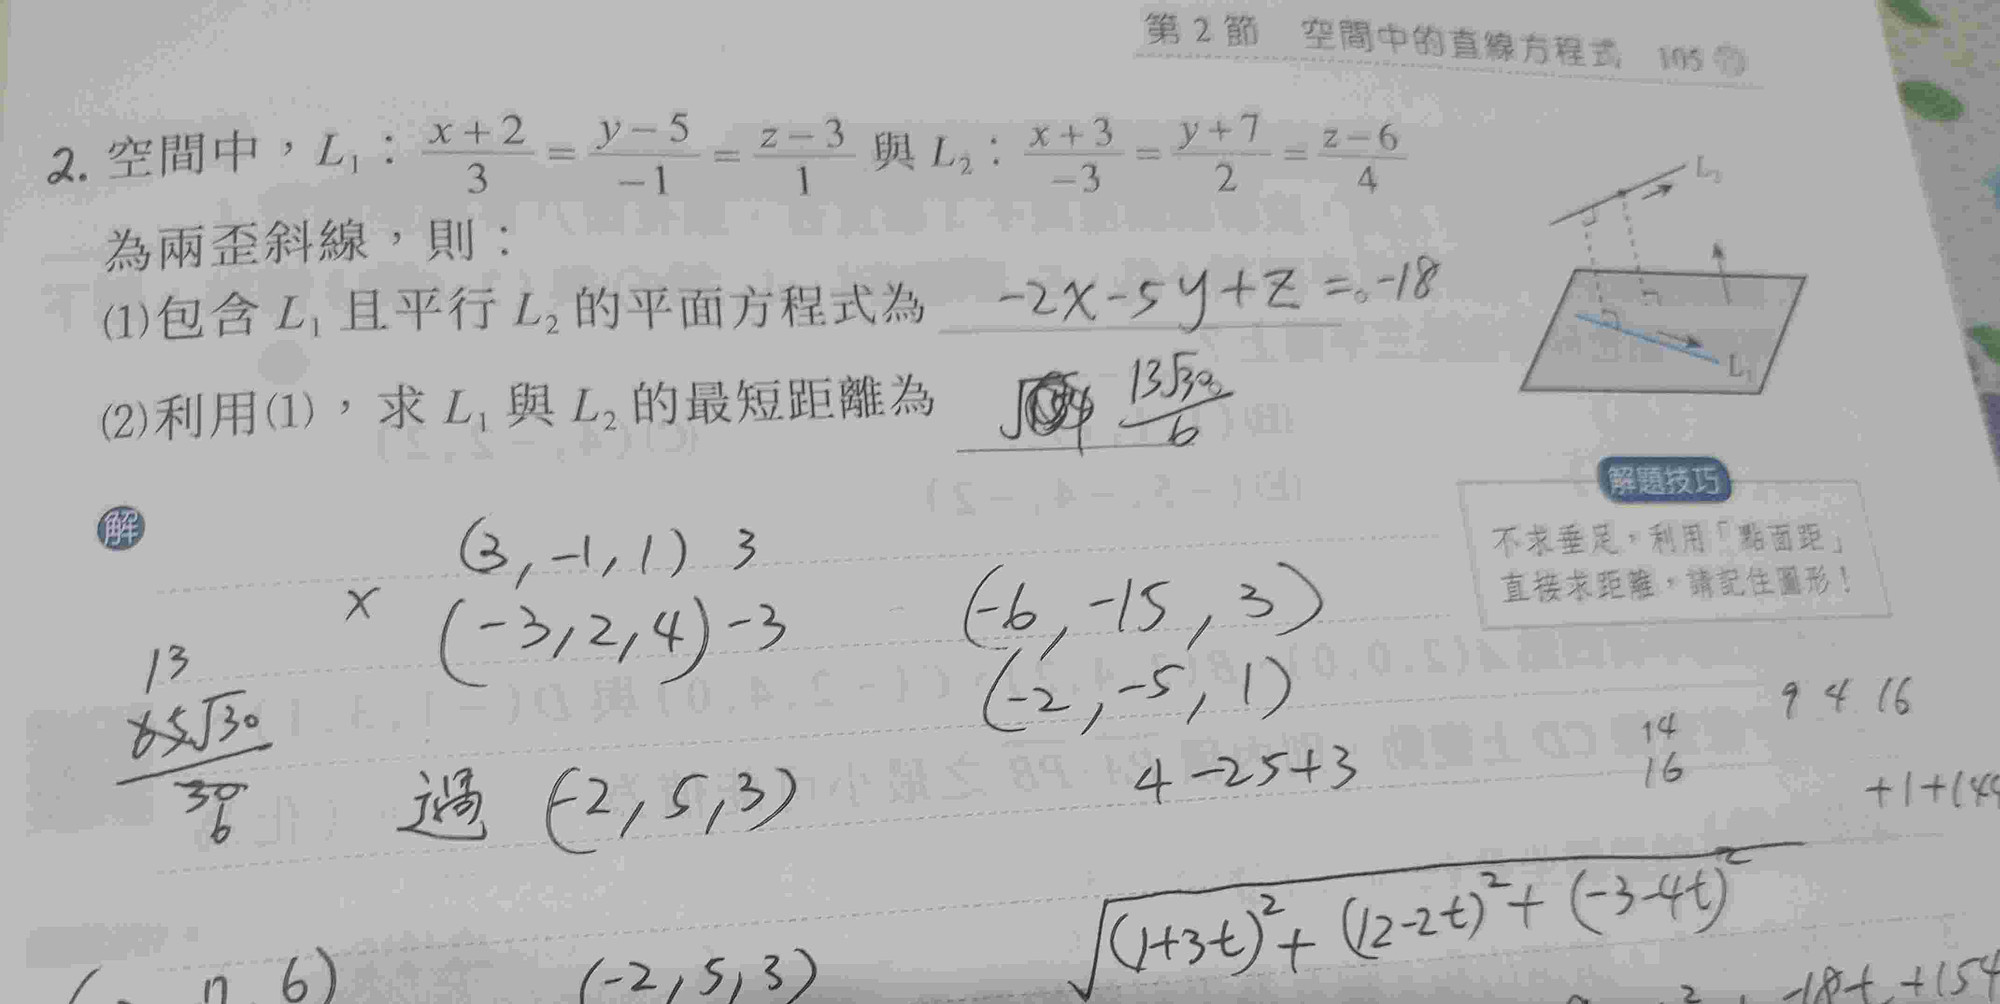 第 2 節 空間中的直線方程式 105
2. 空間中，L₁：\frac{x+2}{3}=\frac{y-5}{-1}=\frac{z-3}{1} 與 L₂：\frac{x+3}{-3}=\frac{y+7}{2}=\frac{z-6}{4}
為兩歪斜線，則：
(1)包含 L₁ 且平行 L₂ 的平面方程式為 -2x-5y+z=-18
(2)利用(1)，求 L₁ 與 L₂ 的最短距離為 \frac{13\sqrt{30}}{6}
L₂
L₁
解題技巧
不求垂足，利用「點面距」
直接求距離，請記住圖形！
解
(3,-1,1) 3
× (-3,2,4) -3
(-6,-15,3)
(-2,-5,1)
13
\frac{65\sqrt{30}}{30}
6
過 (-2,5,3)
4-25+3
14
16
9 4 16
+1+144
\sqrt{(1+3t)^2+(12-2t)^2+(-3-4t)^2}
6)
(-2,5,3)
-18t+154